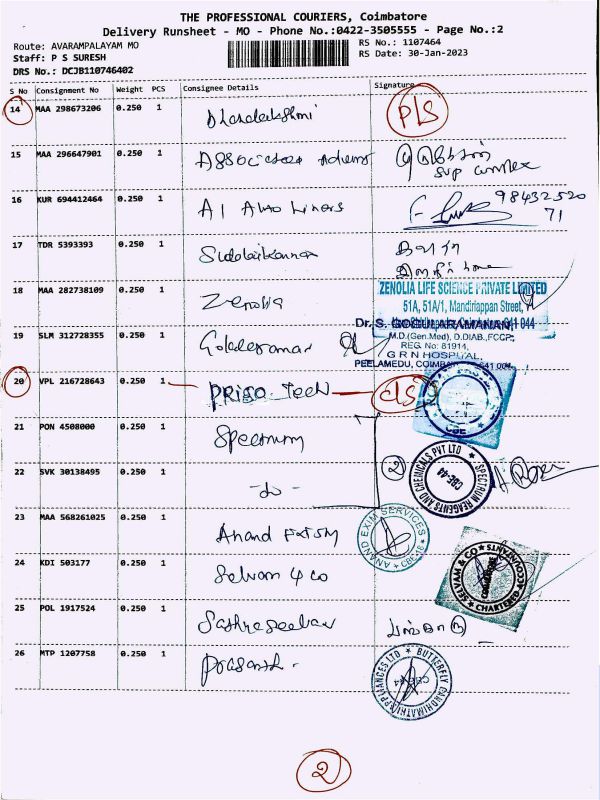 THE PROFESSIONAL COURIERS, Coimbatore
Delivery Runsheet - MO - Phone No.:0422-3505555 - Page No.:2
Route: AVARAMPALAYAM MO
RS No.: 1107464
Staff: P S SURESH
RS Date: 30-Jan-2023
DRS No.: DCJB110746402
S No Consignment No Weight PCS Consignee Details Signature
14 MAA 298673206 0.250 1 P/S
15 MAA 296647901 0.250 1
Sup complex
16 KUR 694412464 0.250 1 A1 Auto Liners 98432520
71
17 TDR 5393393 0.250 1
18 MAA 282738109 0.250 1 Zenolia
ZENOLIA LIFE SCIENCE PRIVATE LIMITED
51A, 51A/1, Mandiriappan Street,
Dr. S. GOGULARAMANAN,
M.D.(Gen.Med), D.DIAB.,FCCP.,
19 SLM 312728355 0.250 1
REG. No: 81914,
G R N HOSPITAL,
PEELAMEDU, COIMBATORE - 641 004.
20 VPL 216728643 0.250 1 PRISO Tech C/S
CBE
21 PON 4508000 0.250 1 Spectrum
SPECTRUM REAGENTS AND CHEMICALS PVT LTD
CBE-44
22 SVK 30138495 0.250 1 -do- 2
23 MAA 568261025 0.250 1 Anand Exism
ANAND EXIM SERVICES
CBE-18
24 KDI 503177 0.250 1 Selvam & Co
SELVAM & CO
CHARTERED ACCOUNTANTS
25 POL 1917524 0.250 1
26 MTP 1207758 0.250 1 Prasanth -
BUTTERFLY GANDHIMATHI APPLIANCES LTD
CBE-44
2